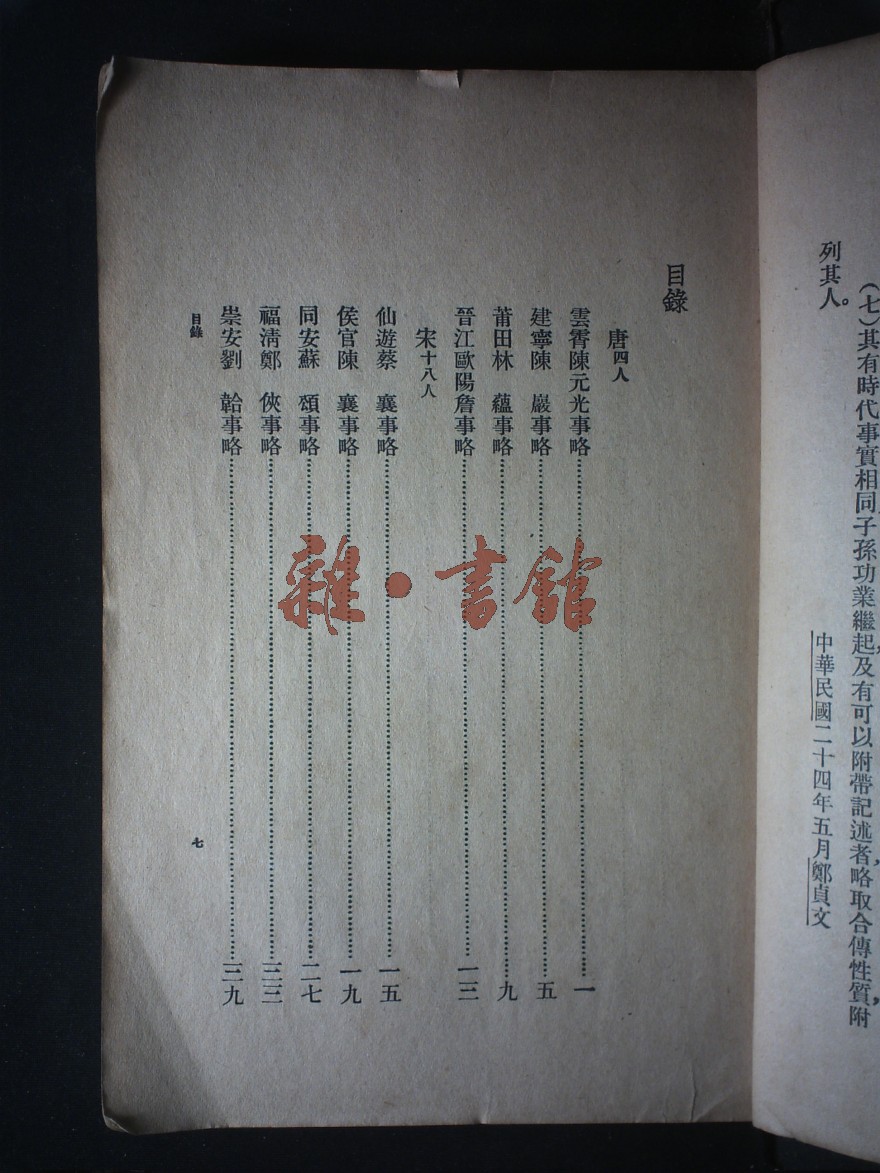 (七)其有時代事實相同子孫功業繼起及有可以附帶記述者,略取合傳性質,附
列其人。
中華民國二十四年五月鄭貞文
目錄
唐四人
雲霄陳元光事略……一
建寧陳 巖事略……五
莆田林 蘊事略……九
晉江歐陽詹事略……一三
宋十八人
仙遊蔡 襄事略……一五
侯官陳 襄事略……一九
同安蘇 頌事略……二七
福清鄭 俠事略……三三
崇安劉 韐事略……三九
目錄
七
雜·書館